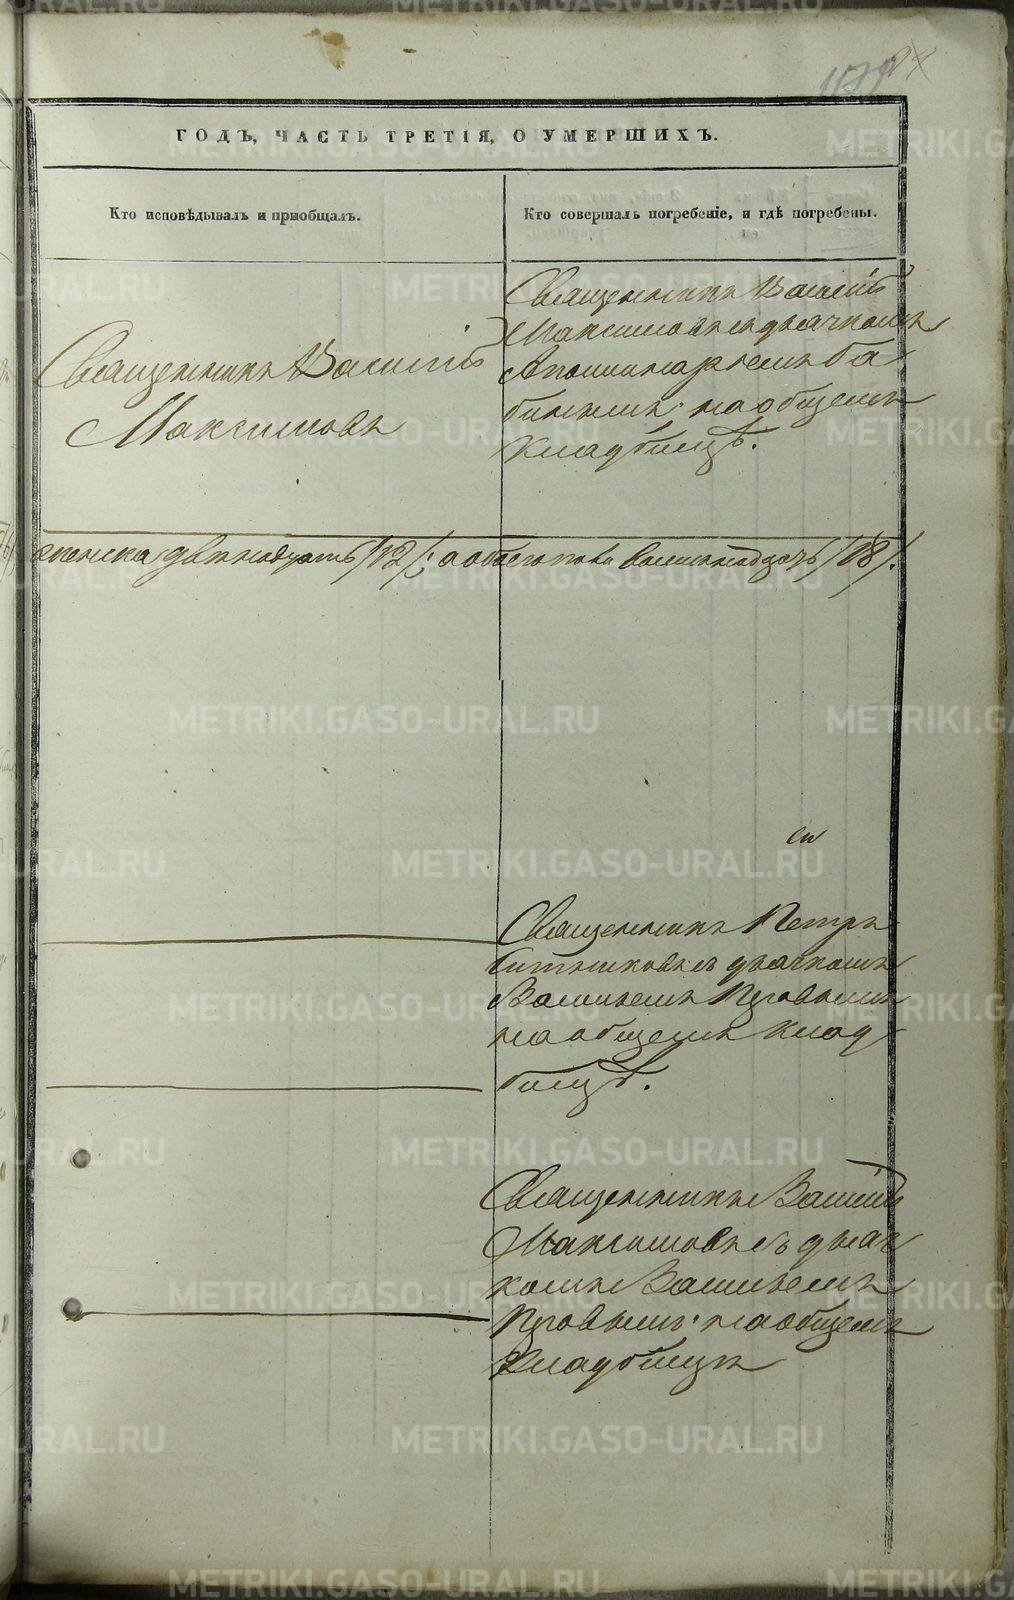 ГОДЪ, ЧАСТЬ ТРЕТІЯ, О УМЕРШИХЪ.
Кто исповѣдывалъ и приобщалъ.
Кто совершалъ погребеніе, и гдѣ погребены.
Священникъ Василій
Максимовъ
Священникъ Василій
Максимовъ съ дьячкомъ
Аполинаріемъ Ба-
бинымъ на общемъ
кладбищѣ.
женска двенадцать /12/; а обоего пола восемнадцать /18/.
Священникъ Петръ
съ дьячкомъ
Васильемъ
на общемъ клад-
бищѣ.
Священникъ Василій
Максимовъ съ дьяч-
комъ Васильемъ
на общемъ
кладбищѣ
METRIKI.GASO-URAL.RU